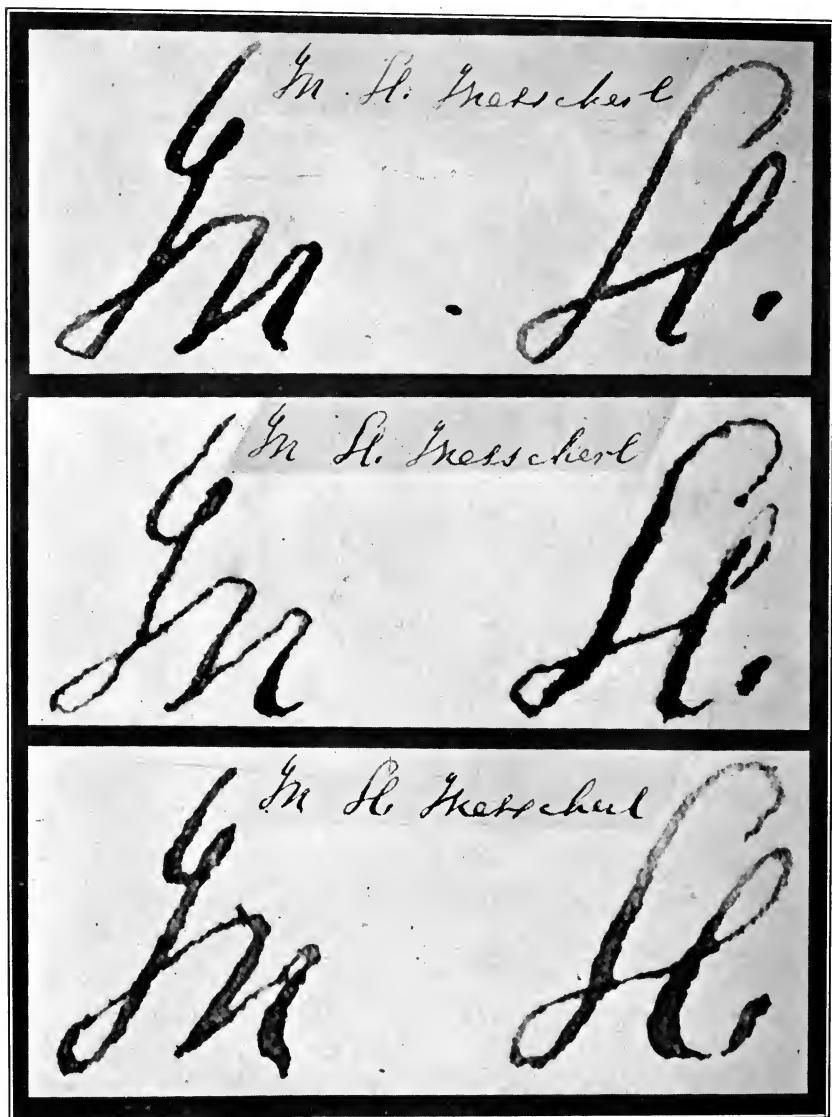 M. H. Messcherl
M. H.
M H. Messcherl
M H.
M H. Messcherl
M H.